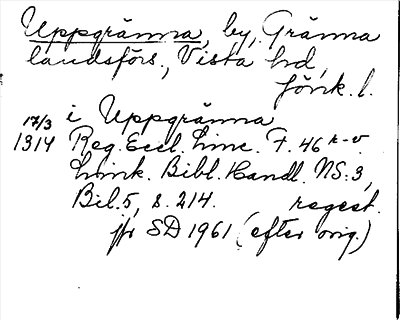 Uppgränna, by, Gränna
landsförs., Vista hd,
Jönk. l.
i Uppgränna
17/3
1314 Reg. Eccl. Linc. F. 46 r-v
Link. Bibl. Handl. NS:3,
Bil. 5, s. 214. regest.
jfr SD 1961 (efter orig.)